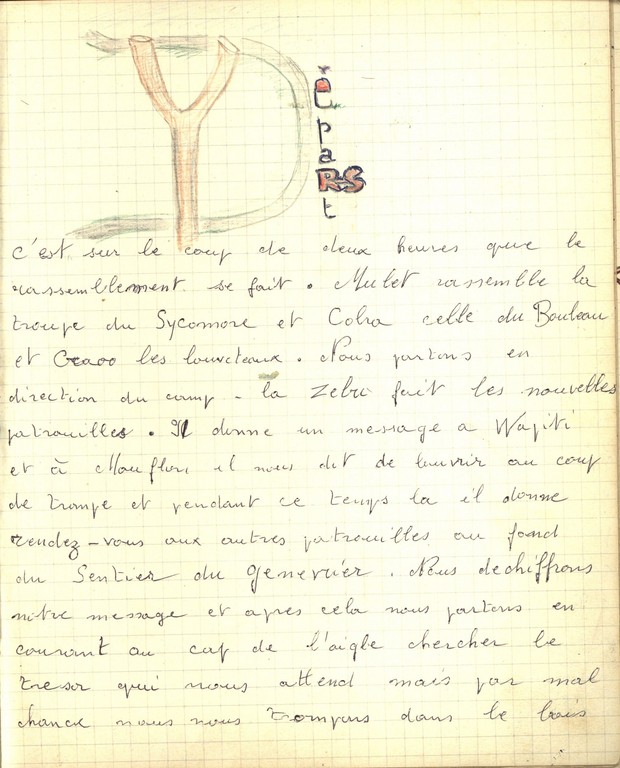 DépaRSt
c'est sur le coup de deux heures que le
rassemblement se fait. Mulet rassemble la
troupe du Sycomore et Cobra celle du Bouleau
et les louveteaux. Nous partons en
direction du camp - la Zebu fait les nouvelles
patrouilles. Il donne un message a Wapiti
et à Mouflon il nous dit de l'ouvrir au coup
de trompe et pendant ce temps la il donne
rendez-vous aux autres patrouilles au fond
du Sentier du genevrier. Nous dechiffrons
notre message et apres cela nous partons en
courant au cap de l'aigle chercher le
tresor qui nous attend mais par mal
chance nous nous trompons dans le bois